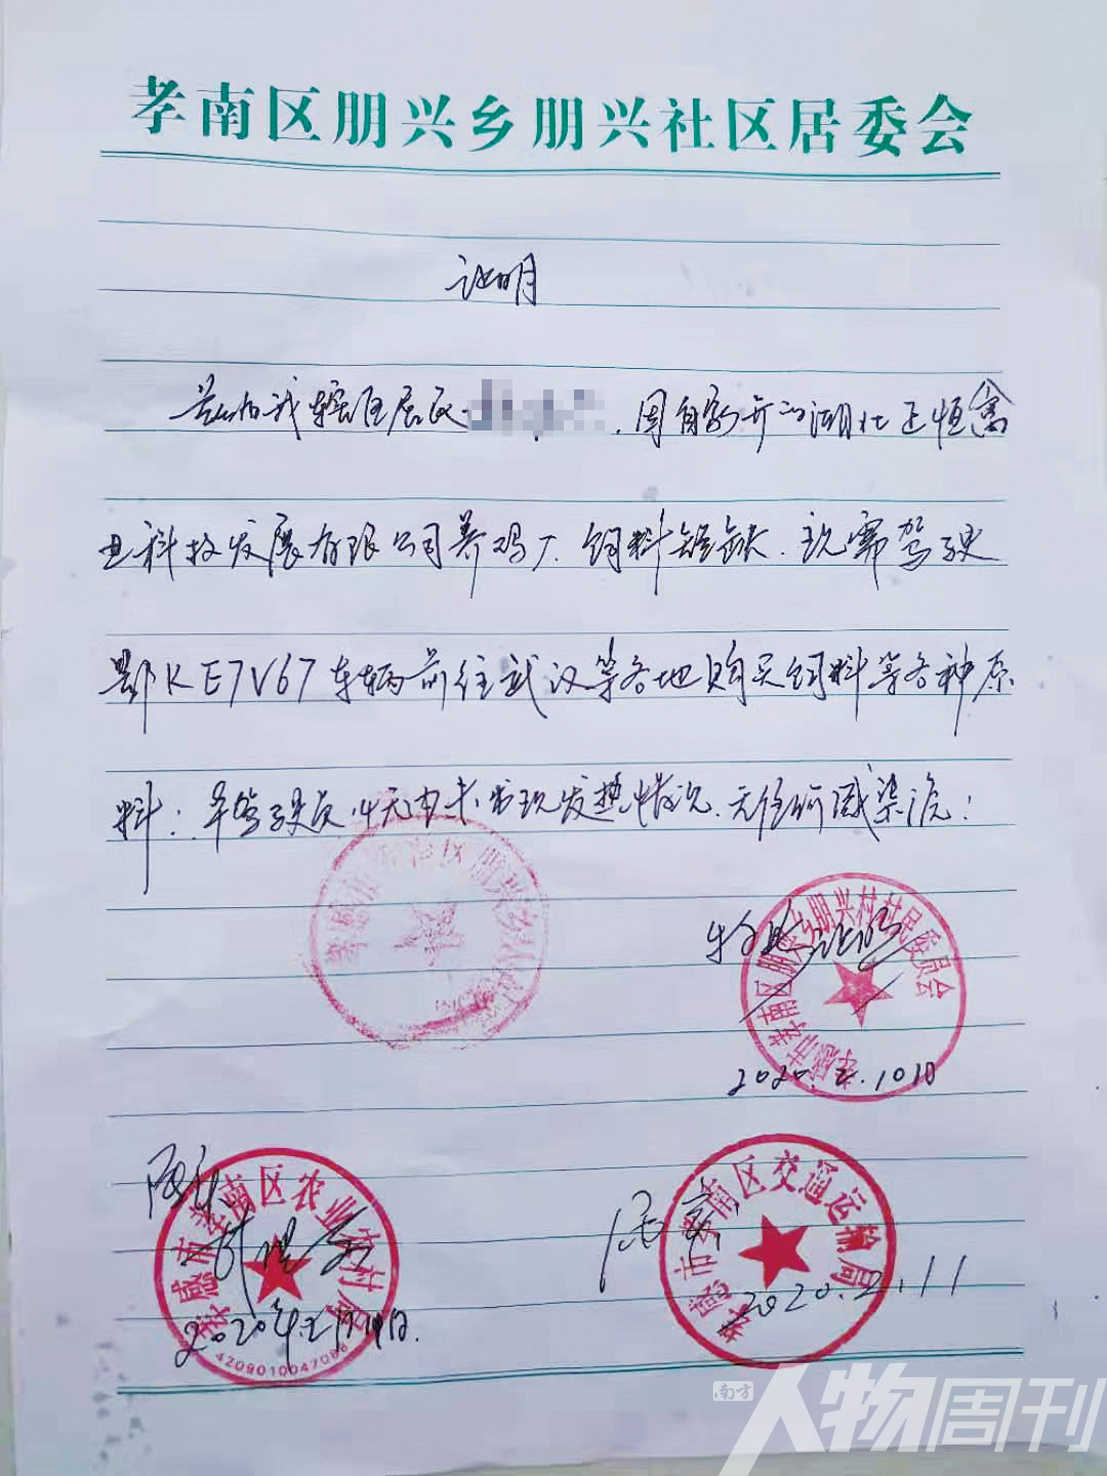 孝南区朋兴乡朋兴社区居委会
证明
兹有我辖区居民 ，因自家开的湖北正恒禽
业科技发展有限公司养鸡厂，饲料短缺，现需驾驶
鄂KE7V67车辆前往武汉等各地购买饲料等各种原
料；车驾驶员 未出现发热情况，无任何感染源；
孝感市孝南区朋兴乡朋兴村村民委员会
2020.2.10日
孝感市孝南区农业农村局
2020年2月10日.
4209010047086
孝感市孝南区交通运输局
同意
2020.2.11
南方人物周刊